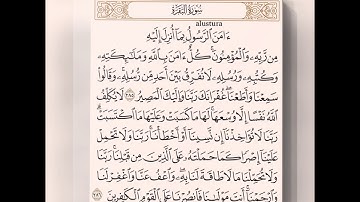 سُورَةُ البَقَرَةِ
alustura
ءَامَنَ ٱلرَّسُولُ بِمَآ أُنزِلَ إِلَيْهِ
مِن رَّبِّهِۦ وَٱلْمُؤْمِنُونَ ۚ كُلٌّ ءَامَنَ بِٱللَّهِ وَمَلَٰٓئِكَتِهِۦ
وَكُتُبِهِۦ وَرُسُلِهِۦ لَا نُفَرِّقُ بَيْنَ أَحَدٍ مِّن رُّسُلِهِۦ ۚ وَقَالُوا۟
سَمِعْنَا وَأَطَعْنَا ۖ غُفْرَانَكَ رَبَّنَا وَإِلَيْكَ ٱلْمَصِيرُ ٢٨٥ لَا يُكَلِّفُ
ٱللَّهُ نَفْسًا إِلَّا وُسْعَهَا ۚ لَهَا مَا كَسَبَتْ وَعَلَيْهَا مَا ٱكْتَسَبَتْ ۗ
رَبَّنَا لَا تُؤَاخِذْنَآ إِن نَّسِينَآ أَوْ أَخْطَأْنَا ۚ رَبَّنَا وَلَا تَحْمِلْ
عَلَيْنَآ إِصْرًا كَمَا حَمَلْتَهُۥ عَلَى ٱلَّذِينَ مِن قَبْلِنَا ۚ رَبَّنَا
وَلَا تُحَمِّلْنَا مَا لَا طَاقَةَ لَنَا بِهِۦ ۖ وَٱعْفُ عَنَّا وَٱغْفِرْ لَنَا
وَٱرْحَمْنَآ ۚ أَنتَ مَوْلَىٰنَا فَٱنصُرْنَا عَلَى ٱلْقَوْمِ ٱلْكَٰفِرِينَ ٢٨٦